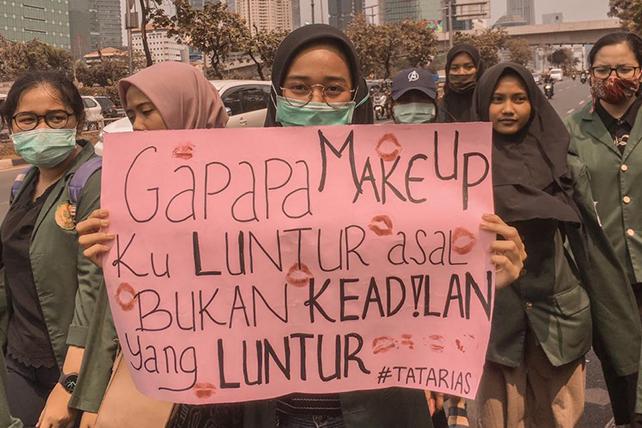 GAPAPA MAKEUP
KU LUNTUR asal
BUKAN KEAD!LAN
yang LUNTUR
#TATARIAS